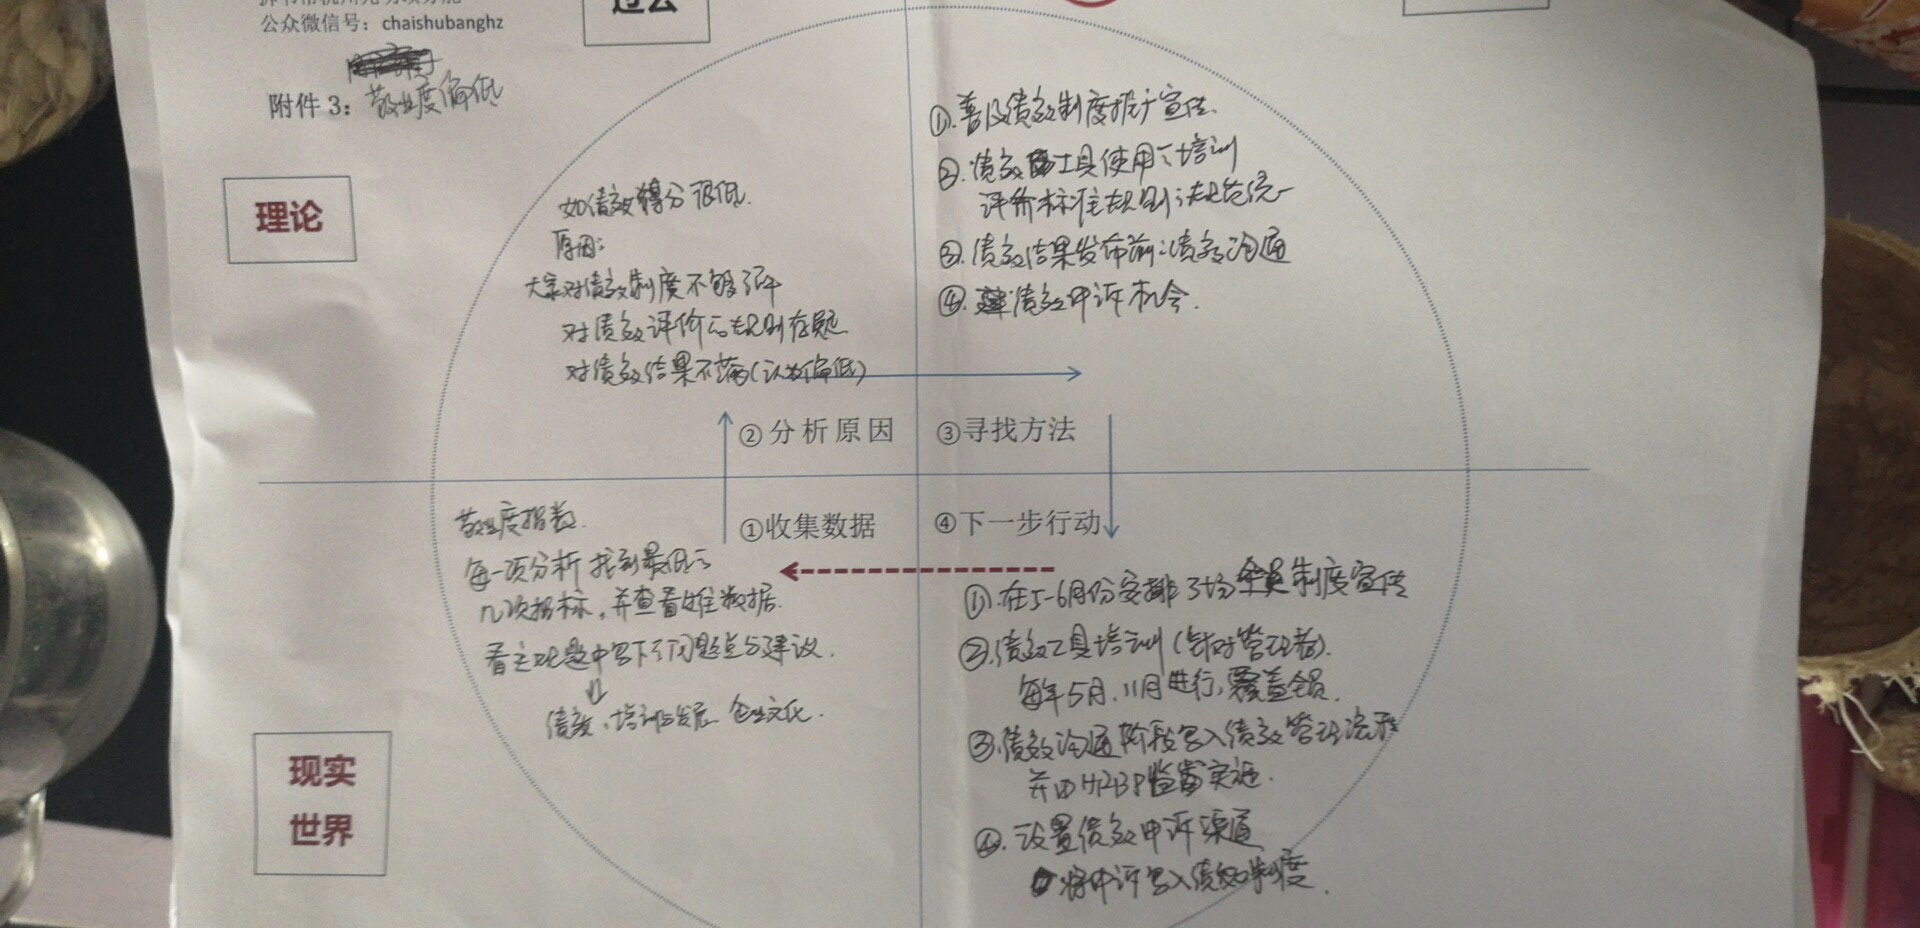 公众微信号：chaishubanghz
过去
附件 3：敬业度偏低
理论
如绩效得分很低.
原因：
大家对绩效制度不够了解
对绩效评价的规则存疑
对绩效结果不满(认为偏低)
②分析原因
①.普及绩效制度推广宣传.
②.绩效工具使用的培训
评价标准规则的规范统一
③.绩效结果发布前的绩效沟通
④.绩效申诉机会.
③寻找方法
敬业度指数.
①收集数据
每一项分析 找到最低的
几项指标,并查看维度数据.
看主观题中写下的问题点与建议.
绩效、培训与发展 企业文化.
现实
世界
④下一步行动
①.在5-6月份安排3场全员制度宣传
②.绩效工具培训(针对管理者).
每年5月.11月进行,覆盖全员.
③.绩效沟通阶段写入绩效管理流程
并由HRBP监督实施.
④.设置绩效申诉渠道
将申诉写入绩效制度.